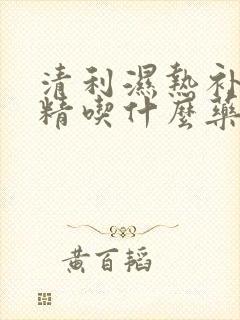 清利濕熱补
精喫什麼藥
黄百韬